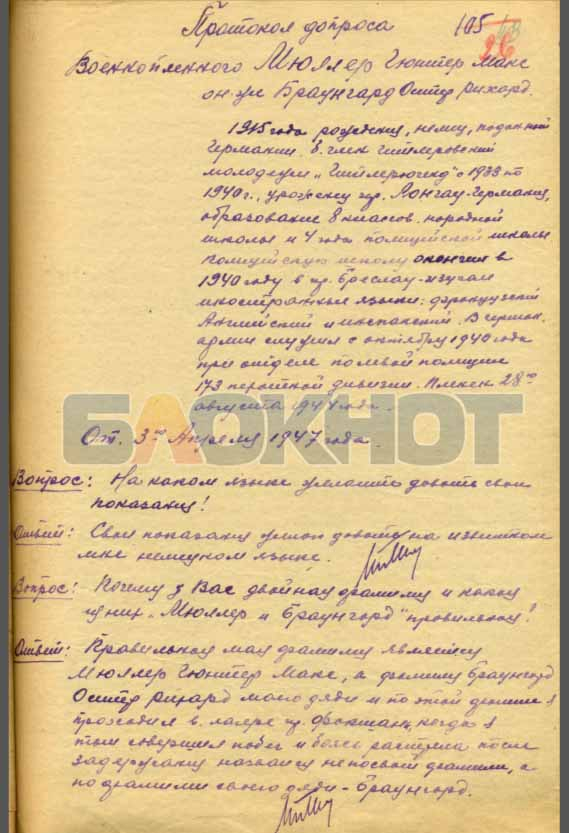 Протокол допроса 105
26
Военнопленного Мюллер Гюнтер Макс
он же Браунгард Оскар Рихард.
1915 года рождения, немец, подданной
Германии. б. член гитлеровский
молодежи "Гитлерюгенд" с 1933 по
1940 г., урожец гор. -Германия,
образование 8 классов народной
школы и 4 года полицийской школы
полицийскую школу окончил в
1940 году в гор. Бреслау-изучал
иностранные языки: французский
Английский и испанский. В герман.
армии служил с октября 1940 года
при отделе полевой полиции
173 пехотной дивизии. Пленен 28го
августа 1944 года.
БЛОКНОТ
От. 3го Апреля 1947 года.
Вопрос: На каком языке желаете давать свои
показания!
Ответ: Свои показания желаю давать на известном
мне немецком языке.
Вопрос: Почему у Вас двойная фамилия и какая
из них "Мюллер и Браунгард" правильная!
Ответ: Правильная моя фамилия является
Мюллер Гюнтер Макс, а фамилия Браунгард
Оскар Рихард моего дяди и по этой фамилие я
проходил в лагере гор. Фокшаны, когда я
там совершил побег и боясь расстрела после
задержания назвался не по своей фамилии, а
по фамилии своего дяди - Браунгард.